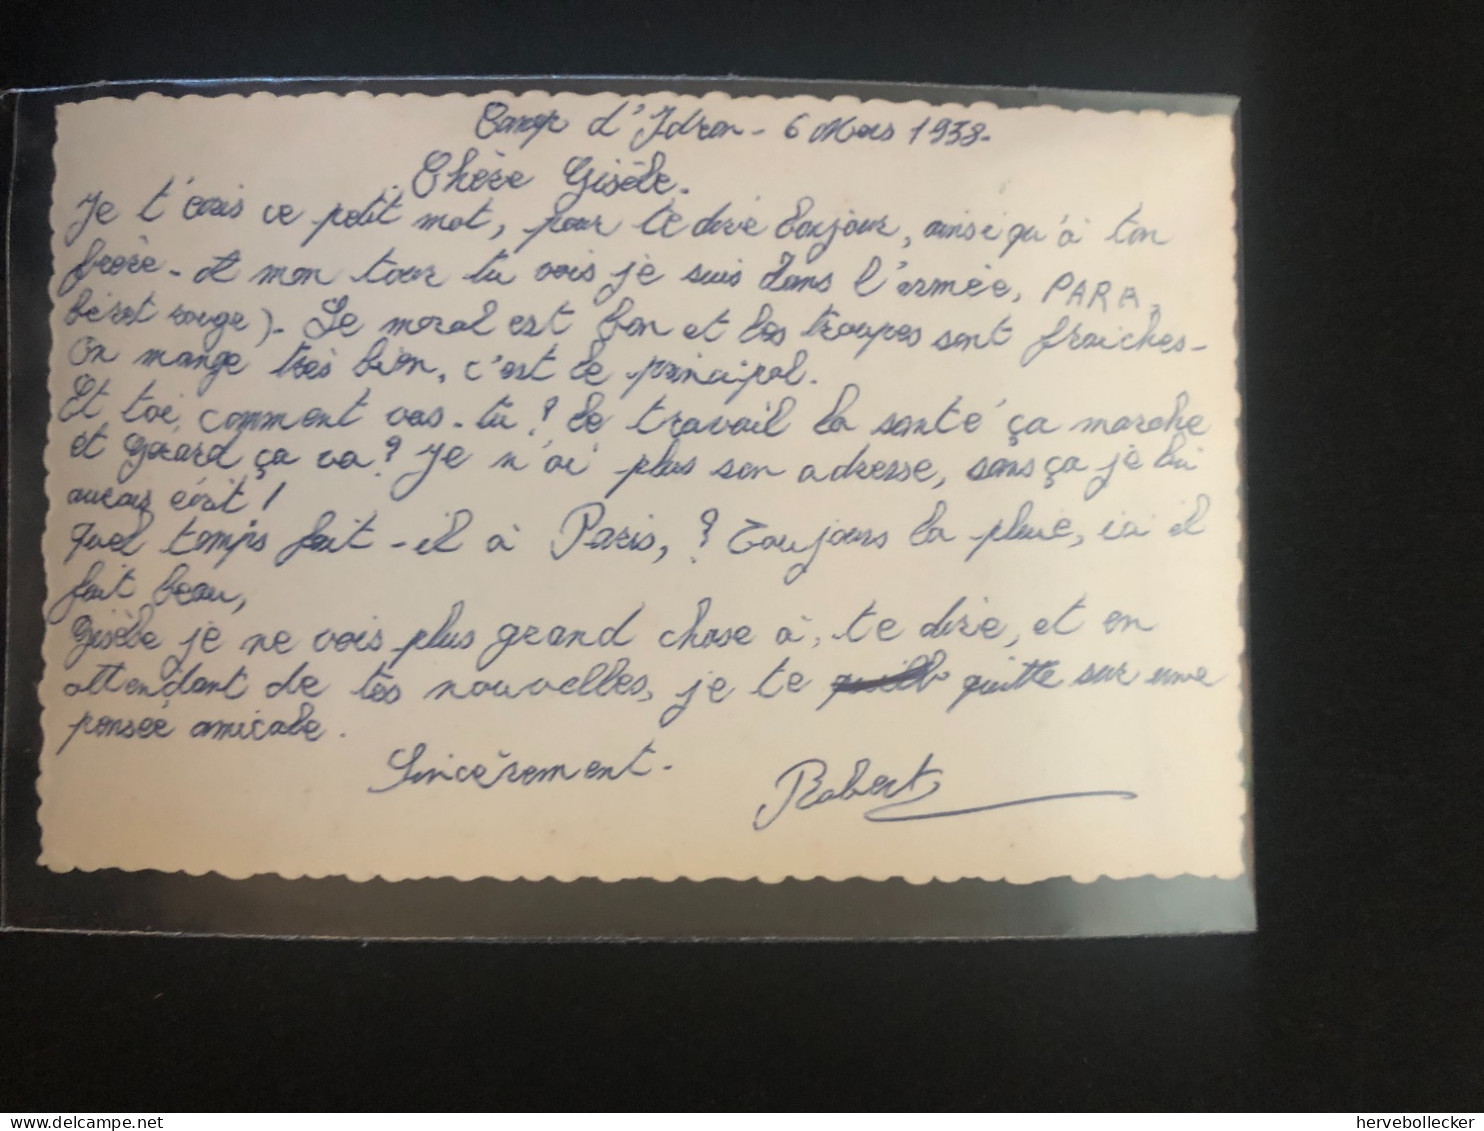 Camp d'Idron - 6 Mars 1958-
Chère Gisèle.
Je t'écris ce petit mot, pour te dire bonjour, ainsi qu'à ton
frère - A mon tour tu vois je suis dans l'armée, PARA,
béret rouge). Le moral est bon et les troupes sont fraiches-
On mange très bien, c'est le principal.
Et toi, comment vas-tu? le travail la santé ça marche
et Gérard ça va? Je n'ai plus son adresse, sans ça je lui
aurais écrit!
Quel temps fait-il à Paris,? Toujours la pluie, ici il
fait beau,
Gisèle je ne vois plus grand chose à te dire, et en
attendant de tes nouvelles, je te quitte sur une
pensée amicale.
Sincèrement-
Robert
hervebollecker